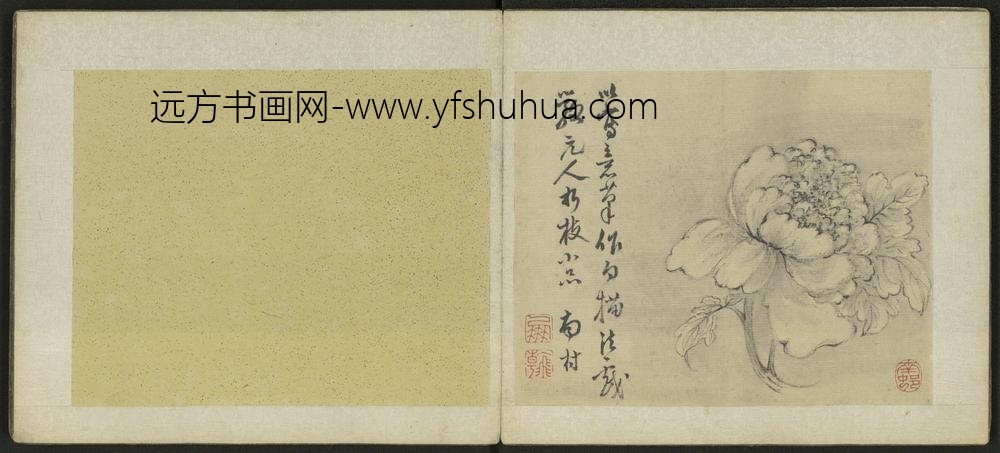 远方书画网-www.yfshuhua.com
以写意笔作白描法戏
拟元人折枝小品 南村